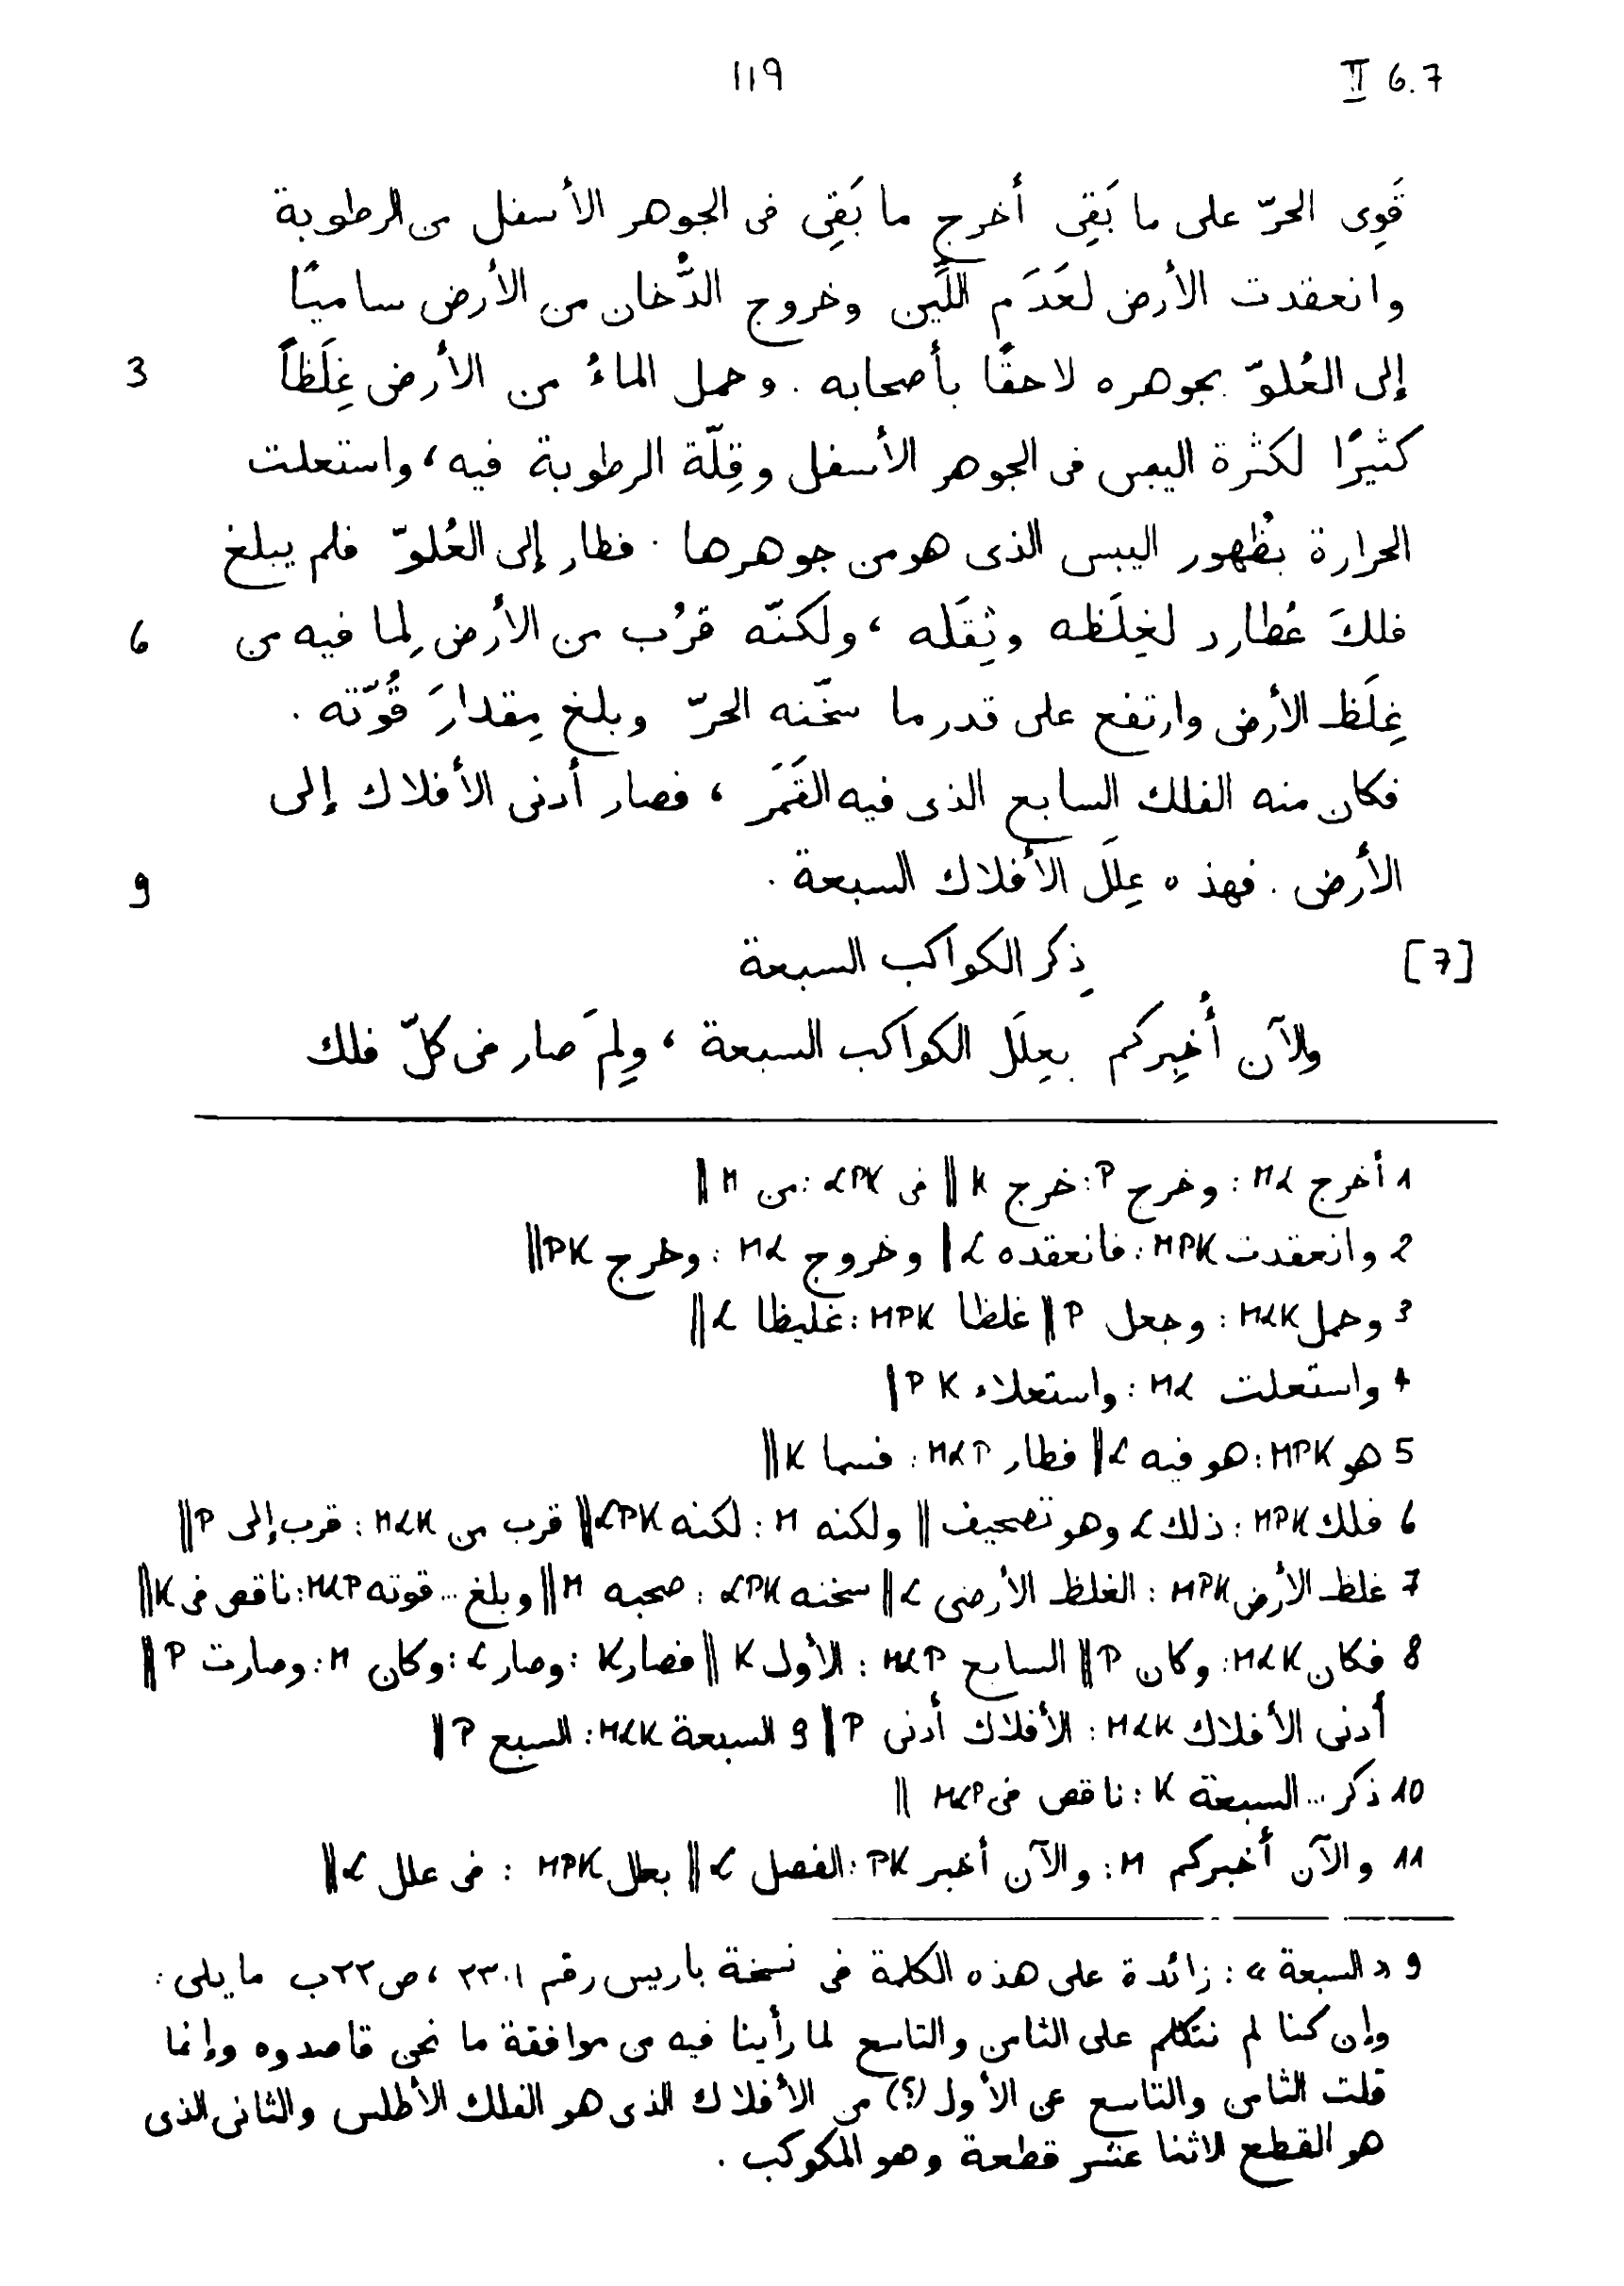 ١١٩ II 6.7
قَوِى الحرّ على ما بَقِى أخرج ما بَقِى فى الجوهر الأسفل من الرطوبة
وانعقدت الأرض لعَدَم اللَّين وخروج الدُّخان من الأرض ساميًا
3 إلى العُلوّ بجوهره لاحقًا بأصحابه . وحمل الماءُ من الأرض غِلَظاً
كثيرًا لكثرة اليبس فى الجوهر الأسفل وقِلّة الرطوبة فيه ، واستعلت
الحرارة بظُهور اليبس الذى هو من جوهرها . فطار إلى العُلوّ فلم يبلغ
6 فلكَ عُطارد لغِلَظه وثِقَله ، ولكنّه قرُب من الأرض لِما فيه من
غِلَظ الأرض وارتفع على قدر ما سخّنه الحرّ وبلغ مِقدارَ قُوّته .
فكان منه الفلك السابع الذى فيه القَمَر ، فصار أدنى الأفلاك إلى
9 الأرض . فهذه عِلَل الأفلاك السبعة .
[7] ذِكر الكواكب السبعة
والآن أُخبِركم بعِلَل الكواكب السبعة ، ولِمَ صار فى كلّ فلك
1 أخرج ML : وخرج P : خرج K || فى LPK : من M ||
2 وانعقدت MPK : فانعقده L || وخروج ML : وخرج PK ||
3 وحمل MLK : وجعل P || غلظا MPK : غليظا L ||
4 واستعلت ML : واستعلاء PK |
5 هو MPK : هو فيه L || فطار MLP : فسما K ||
6 فلك MPK : ذلك L وهو تصحيف || ولكنه M : لكنه LPK || قرب من MLK : قرب إلى P ||
7 غلظ الأرض MPK : الغلظ الأرضى L || سخنه LPK : صحبه M || وبلغ ... قوته MLP : ناقص فى K ||
8 فكان MLK : وكان P || السابع MLP : الأول K || فصار K : وصار L : وكان M : وصارت P ||
أدنى الأفلاك MLK : الأفلاك أدنى P || 9 السبعة MLK : السبع P ||
10 ذكر ... السبعة K : ناقص فى MLP ||
11 والآن أخبركم M : والآن أخبر PK : الفصل L || بعلل MPK : فى علل L ||
9 « السبعة » : زائدة على هذه الكلمة فى نسخة باريس رقم ٢٣٠١ ، ص ٢٢ ب ما يلى :
وإن كنا لم نتكلم على الثامن والتاسع لما رأينا فيه من موافقة ما نحن قاصدوه وإنما
قلت الثامن والتاسع عن الأول (؟) من الأفلاك الذى هو الفلك الأطلس والثانى الذى
هو القطع لاثنا عشر قطعة وهو المكوكب .